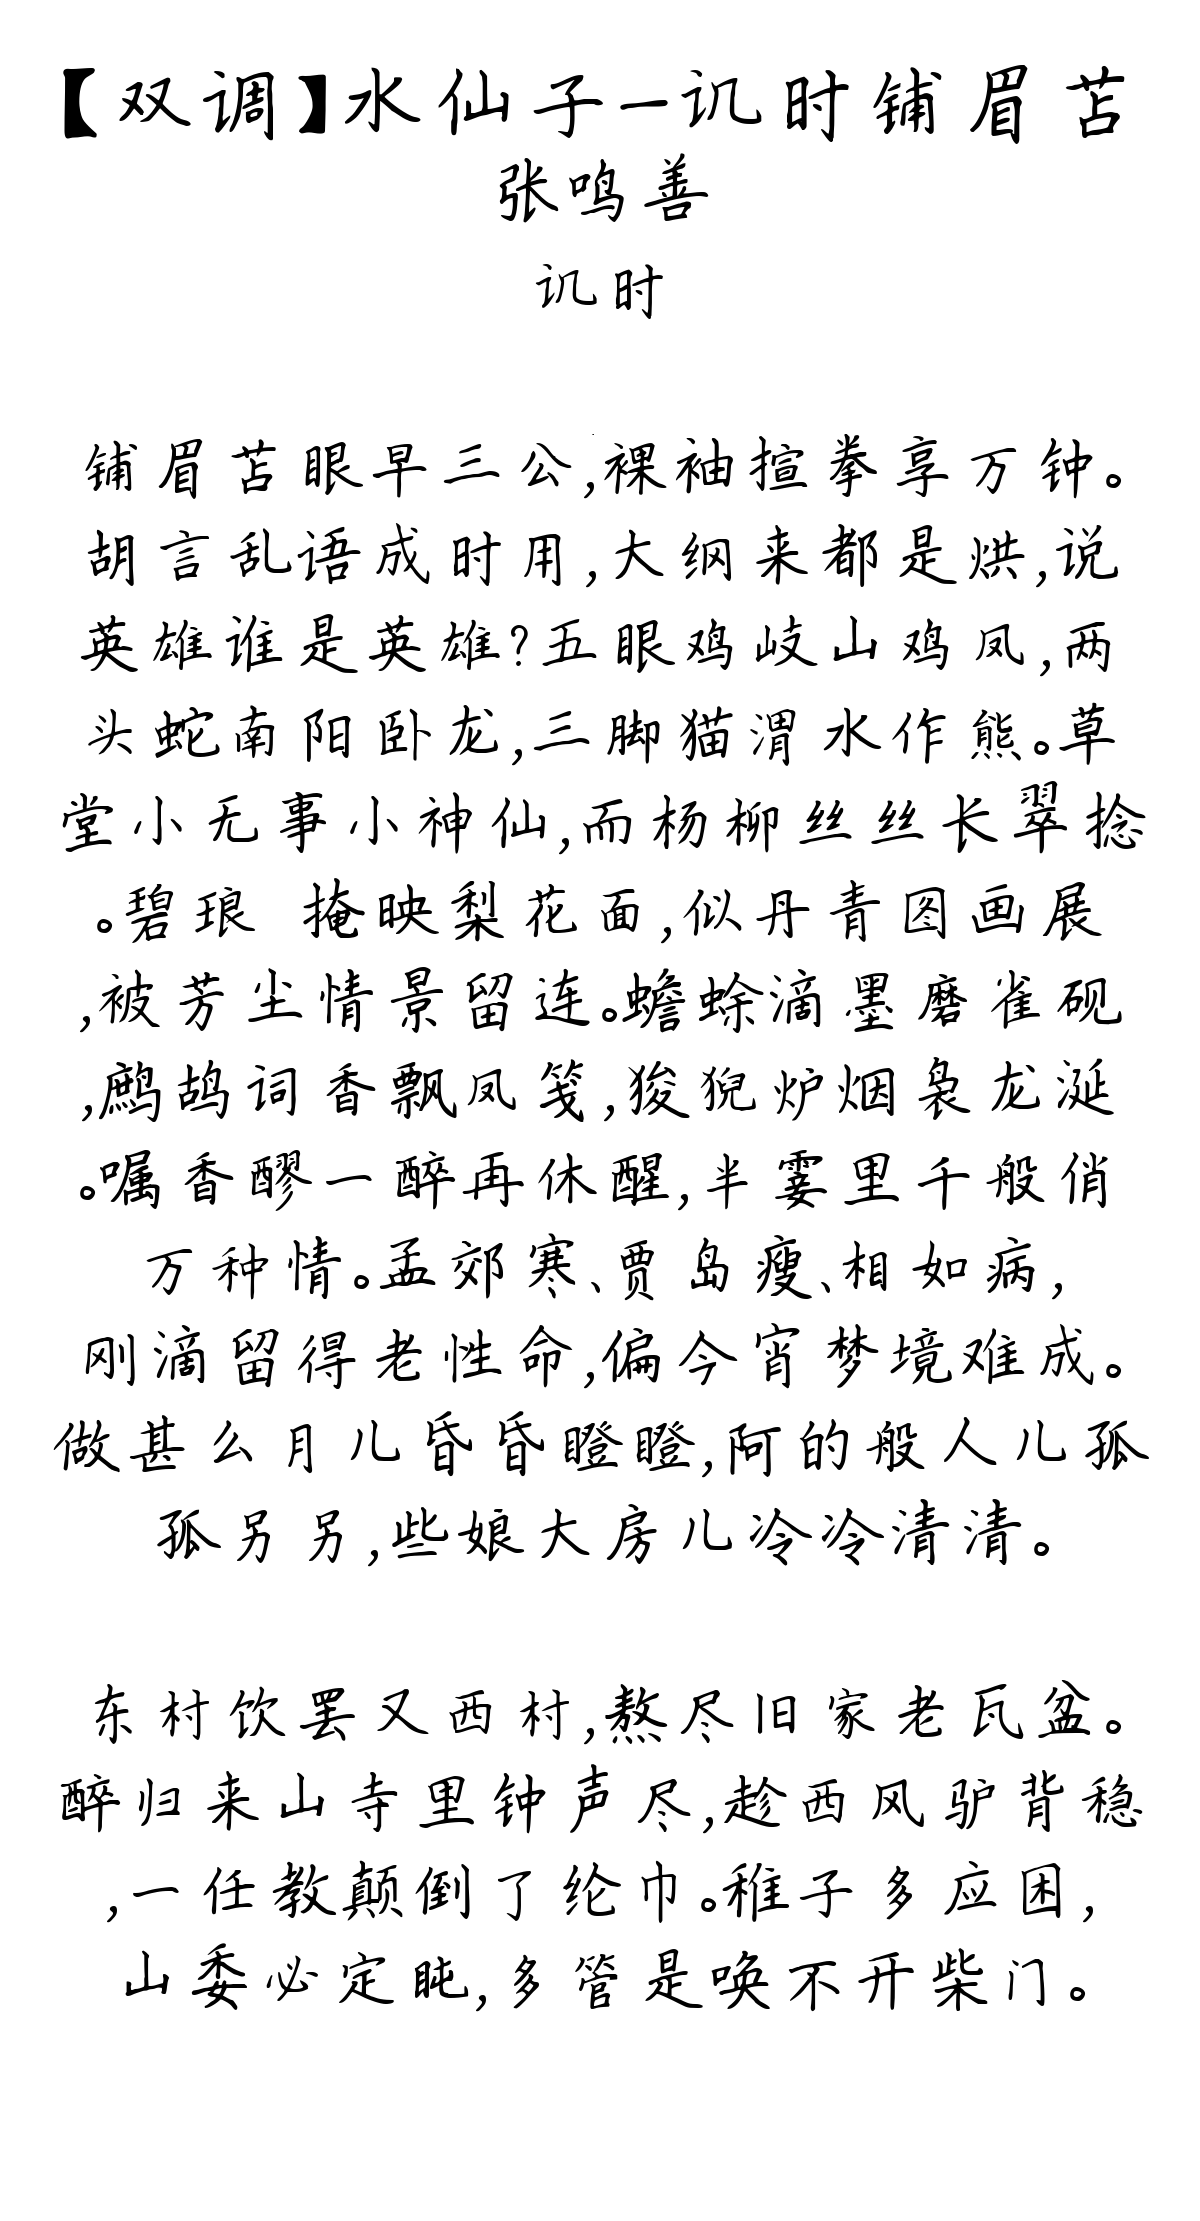 【双调】水仙子-讥时铺眉苫
张鸣善
讥时
铺眉苫眼早三公,裸袖揎拳享万钟。
胡言乱语成时用,大纲来都是烘,说
英雄谁是英雄?五眼鸡岐山鸡凤,两
头蛇南阳卧龙,三脚猫渭水作熊。草
堂小无事小神仙,而杨柳丝丝长翠捻
。碧琅 掩映梨花面,似丹青图画展
,被芳尘情景留连。蟾蜍滴墨磨雀砚
,鹧鸪词香飘凤笺,狻猊炉烟袅龙涎
。嘱香醪一醉再休醒,半霎里千般俏
万种情。孟郊寒、贾岛瘦、相如病,
刚滴留得老性命,偏今宵梦境难成。
做甚么月儿昏昏瞪瞪,阿的般人儿孤
孤另另,些娘大房儿冷冷清清。
东村饮罢又西村,熬尽旧家老瓦盆。
醉归来山寺里钟声尽,趁西风驴背稳
,一任教颠倒了纶巾。稚子多应困,
山委必定盹,多管是唤不开柴门。